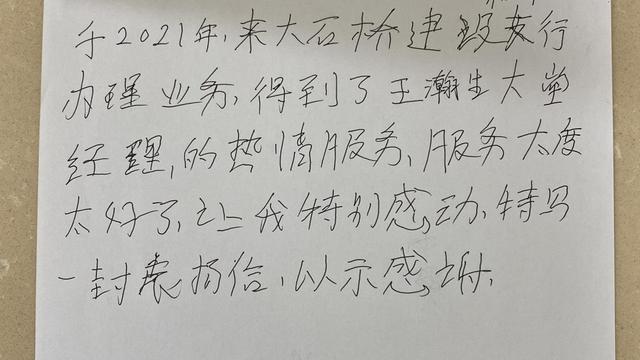 于2021年,来大石桥建设支行
办理业务,得到了王瀚生大堂
经理,的热情服务,服务太度
太好了,让我特别感动,特写
一封表扬信,以示感谢,